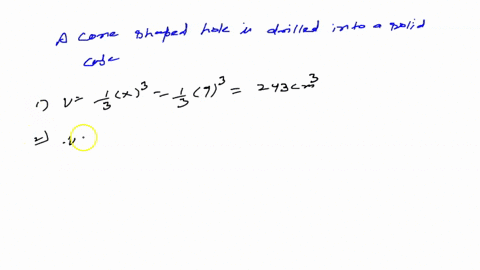 A cone shaped hole is drilled into a solid
cube
1) V= 1/3 (x)^3 = 1/3 (9)^3 = 243 cm^3
2) .v.